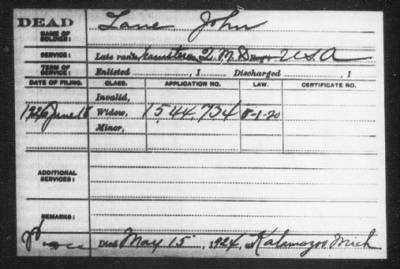 DEAD
NAME OF SOLDIER:
Lane John
SERVICE:
Late rank, Teamster Q. M. D. Reg't U.S.A
TERM OF SERVICE:
Enlisted , 1 Discharged , 1
DATE OF FILING. CLASS. APPLICATION NO. LAW. CERTIFICATE NO.
Invalid,
1924 June 18 Widow, 1544,734 5-1-20
Minor,
ADDITIONAL SERVICES:
REMARKS:
Died May 15, 1924, at Kalamazoo Mich